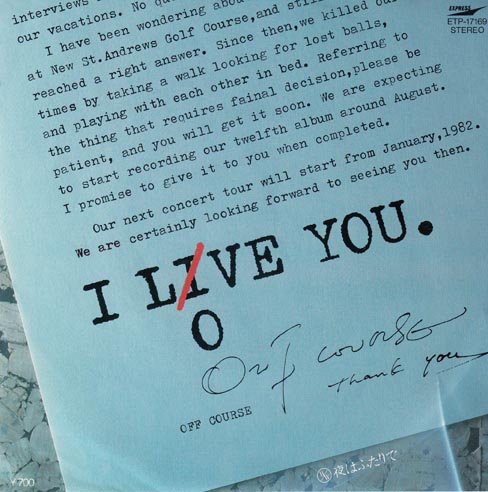 interviews
our vacations. No
I have been wondering about
at New St.Andrews Golf Course,and still
reached a right answer. Since then,we killed our
times by taking a walk looking for lost balls,
and playing with each other in bed. Referring to
the thing that requires fainal decision,please be
patient, and you will get it soon. We are expecting
to start recording our twelfth album around August.
I promise to give it to you when completed.
Our next concert tour will start from January,1982.
We are certainly looking forward to seeing you then.
I LIVE YOU.
O
Off course
thank you
OFF COURSE
EXPRESS
ETP-17169
STEREO
¥700
夜はふたりで